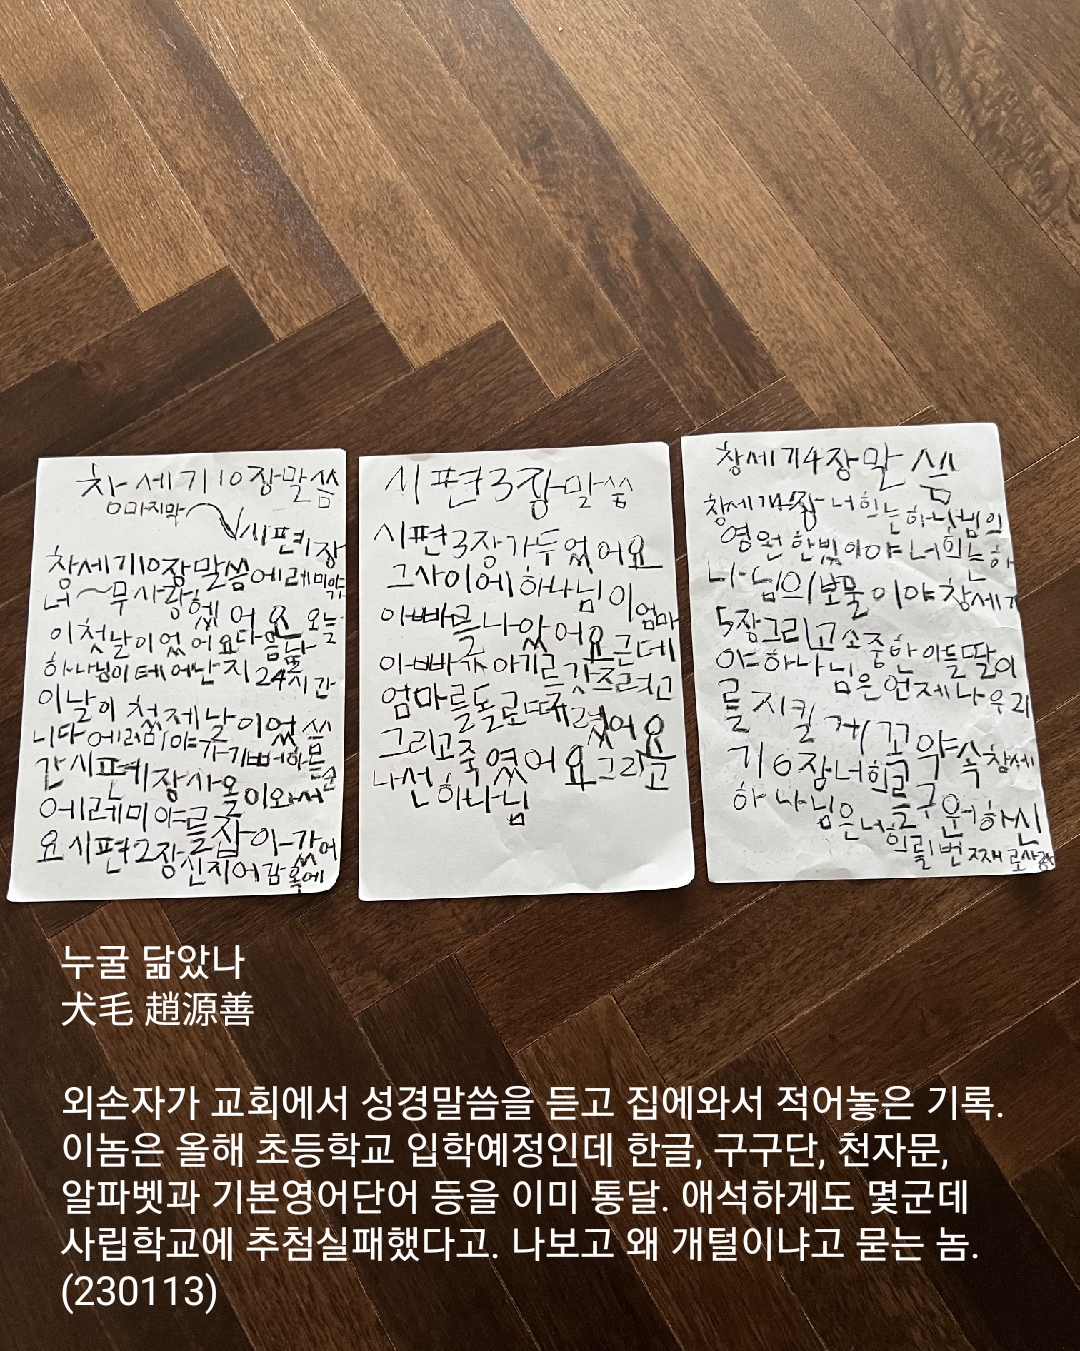 창세기10장말씀
마지막 시편1장
창세기10장말씀에레미야
너~무사랑했어요 오늘
이첫날이었어요다음날
하나님이테어난지24시간
이날이첫제날이었씁
니다에러미야가기뻐하는순
간시편1장사울이와서
에레미야를잡아갔어
요시편2장신지어감옥에
시편3장말씀
시편3장가두었어요
그사이에하나님이엄마
아빠를나았어요근데
아빠가아기를갖즈려고
엄마를돌로때렸어요
그리고죽였어요그리고
나선하나님
창세기4장말씀
창세기4장너희는하나님의
영원한빛이야너희는하
나님의보물이야창세기
5장그리고소중한아들딸이
야하나님은언제나우리
를지킬게꼭약속창세
기6장너희를구원하신
하나님은너희를
릴번째로사랑
누굴 닮았나
犬毛 趙源善
외손자가 교회에서 성경말씀을 듣고 집에와서 적어놓은 기록.
이놈은 올해 초등학교 입학예정인데 한글, 구구단, 천자문,
알파벳과 기본영어단어 등을 이미 통달. 애석하게도 몇군데
사립학교에 추첨실패했다고. 나보고 왜 개털이냐고 묻는 놈.
(230113)